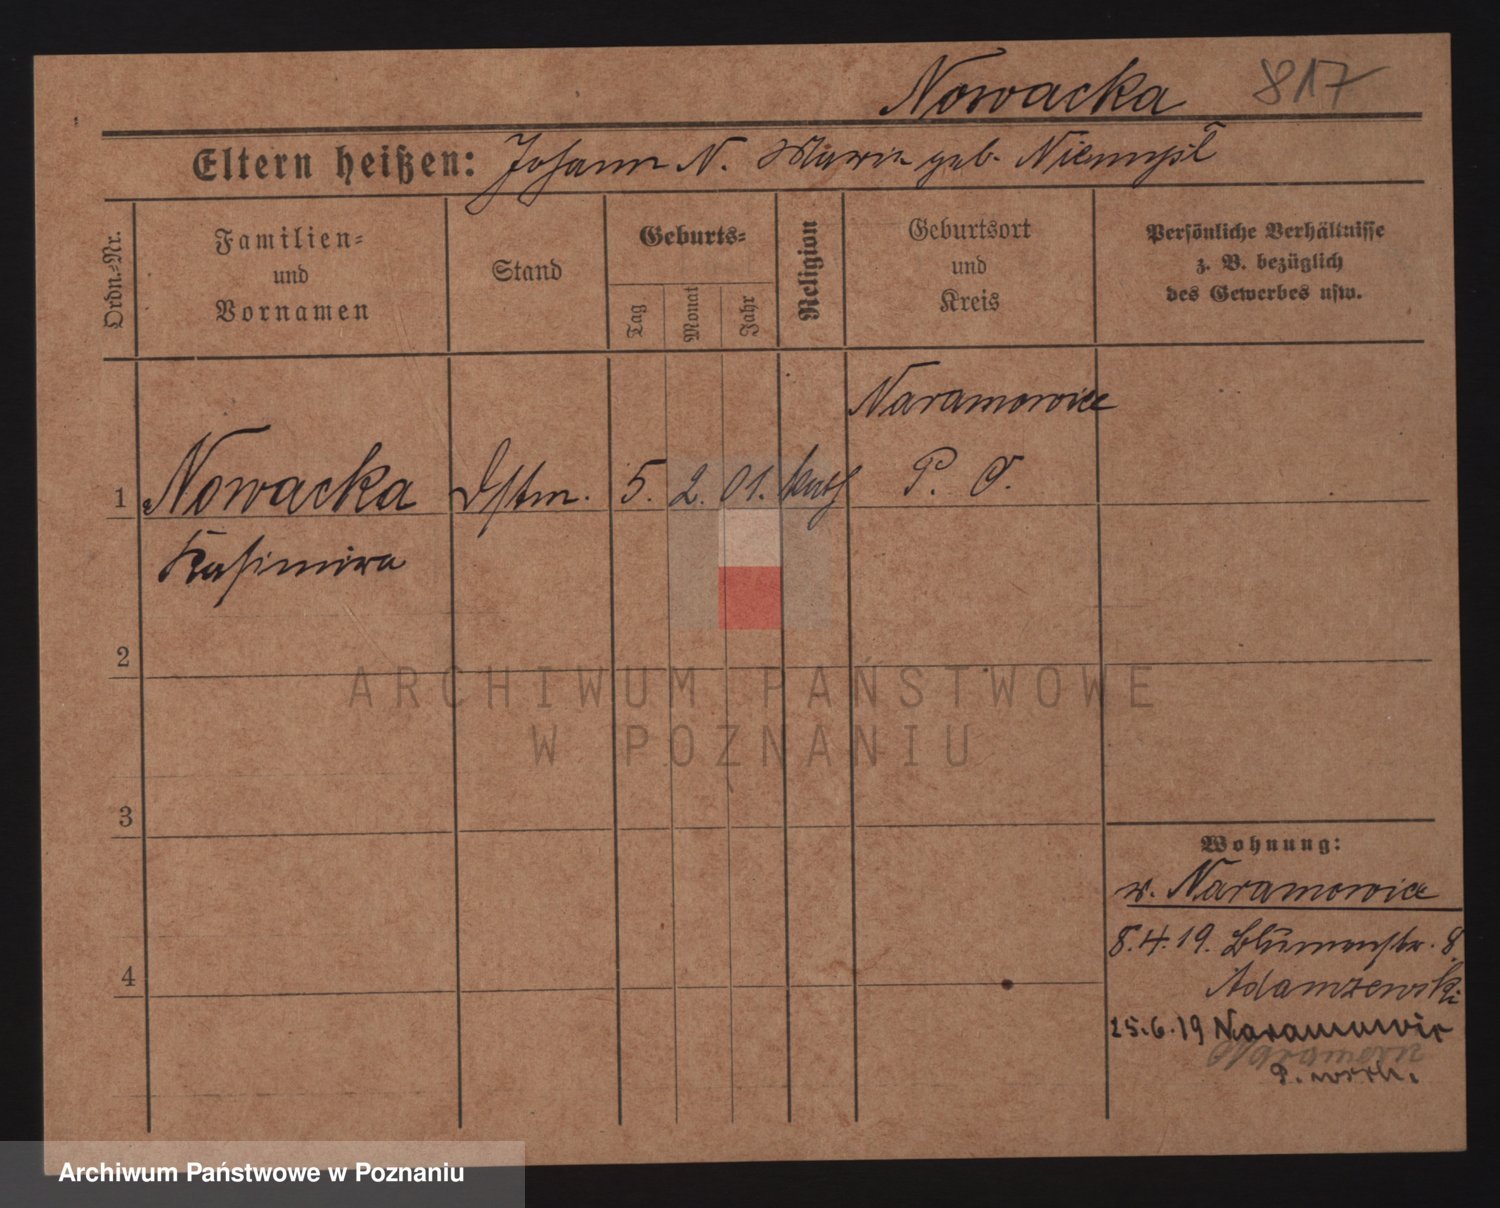 Nowacka 817
Eltern heißen: Johann N. Maria geb.
Ordn.=Nr.
Familien=
und
Vornamen
Stand
Geburts=
Tag
Monat
Jahr
Religion
Geburtsort
und
Kreis
Persönliche Verhältnisse
z. B. bezüglich
des Gewerbes usw.
Naramowice
1 Nowacka Dstm. 5. 2. 01. kath P. O.
Kasimira
2
ARCHIWUM PAŃSTWOWE
W POZNANIU
3
Wohnung:
w. Naramowice
8.4.19. Blumenstr. 8.
Adamzewski
25.6.19 Naramowic
P. West.
4
Archiwum Państwowe w Poznaniu